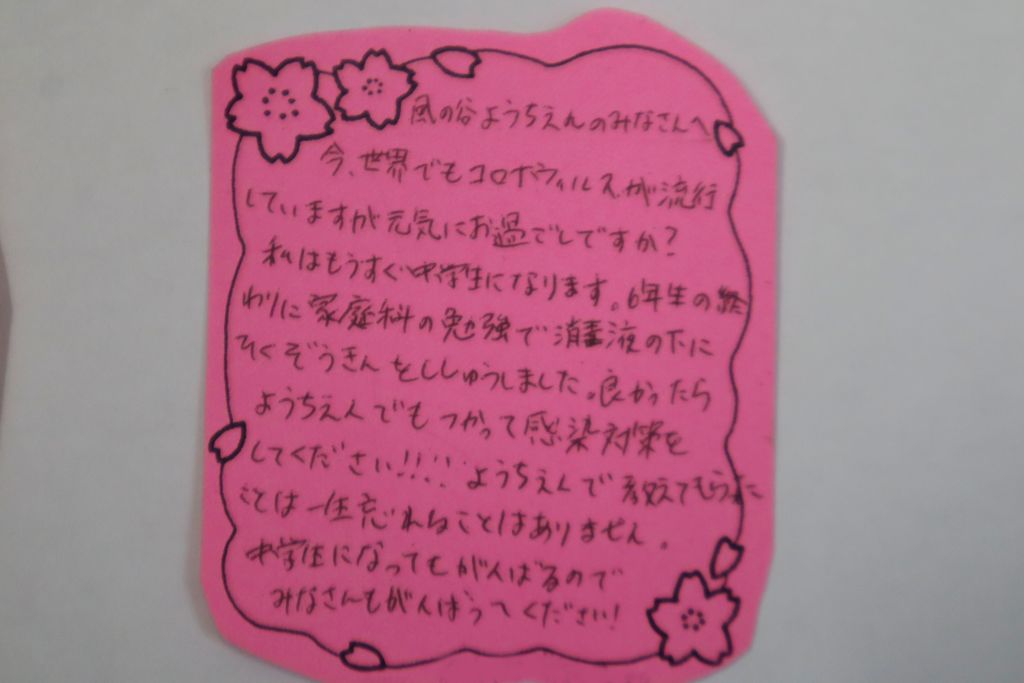 風の谷ようちえんのみなさんへ
今、世界でもコロナウィルスが流行
していますが元気にお過ごしですか?
私はもうすぐ中学生になります。6年生の終
わりに家庭科の勉強で消毒液の下に
ひくぞうきんをししゅうしました。良かったら
ようちえんでもつかって感染対策を
してください!!!!ようちえんで教えてもらった
ことは一生忘れることはありません。
中学生になってもがんばるので
みなさんもがんばってください!